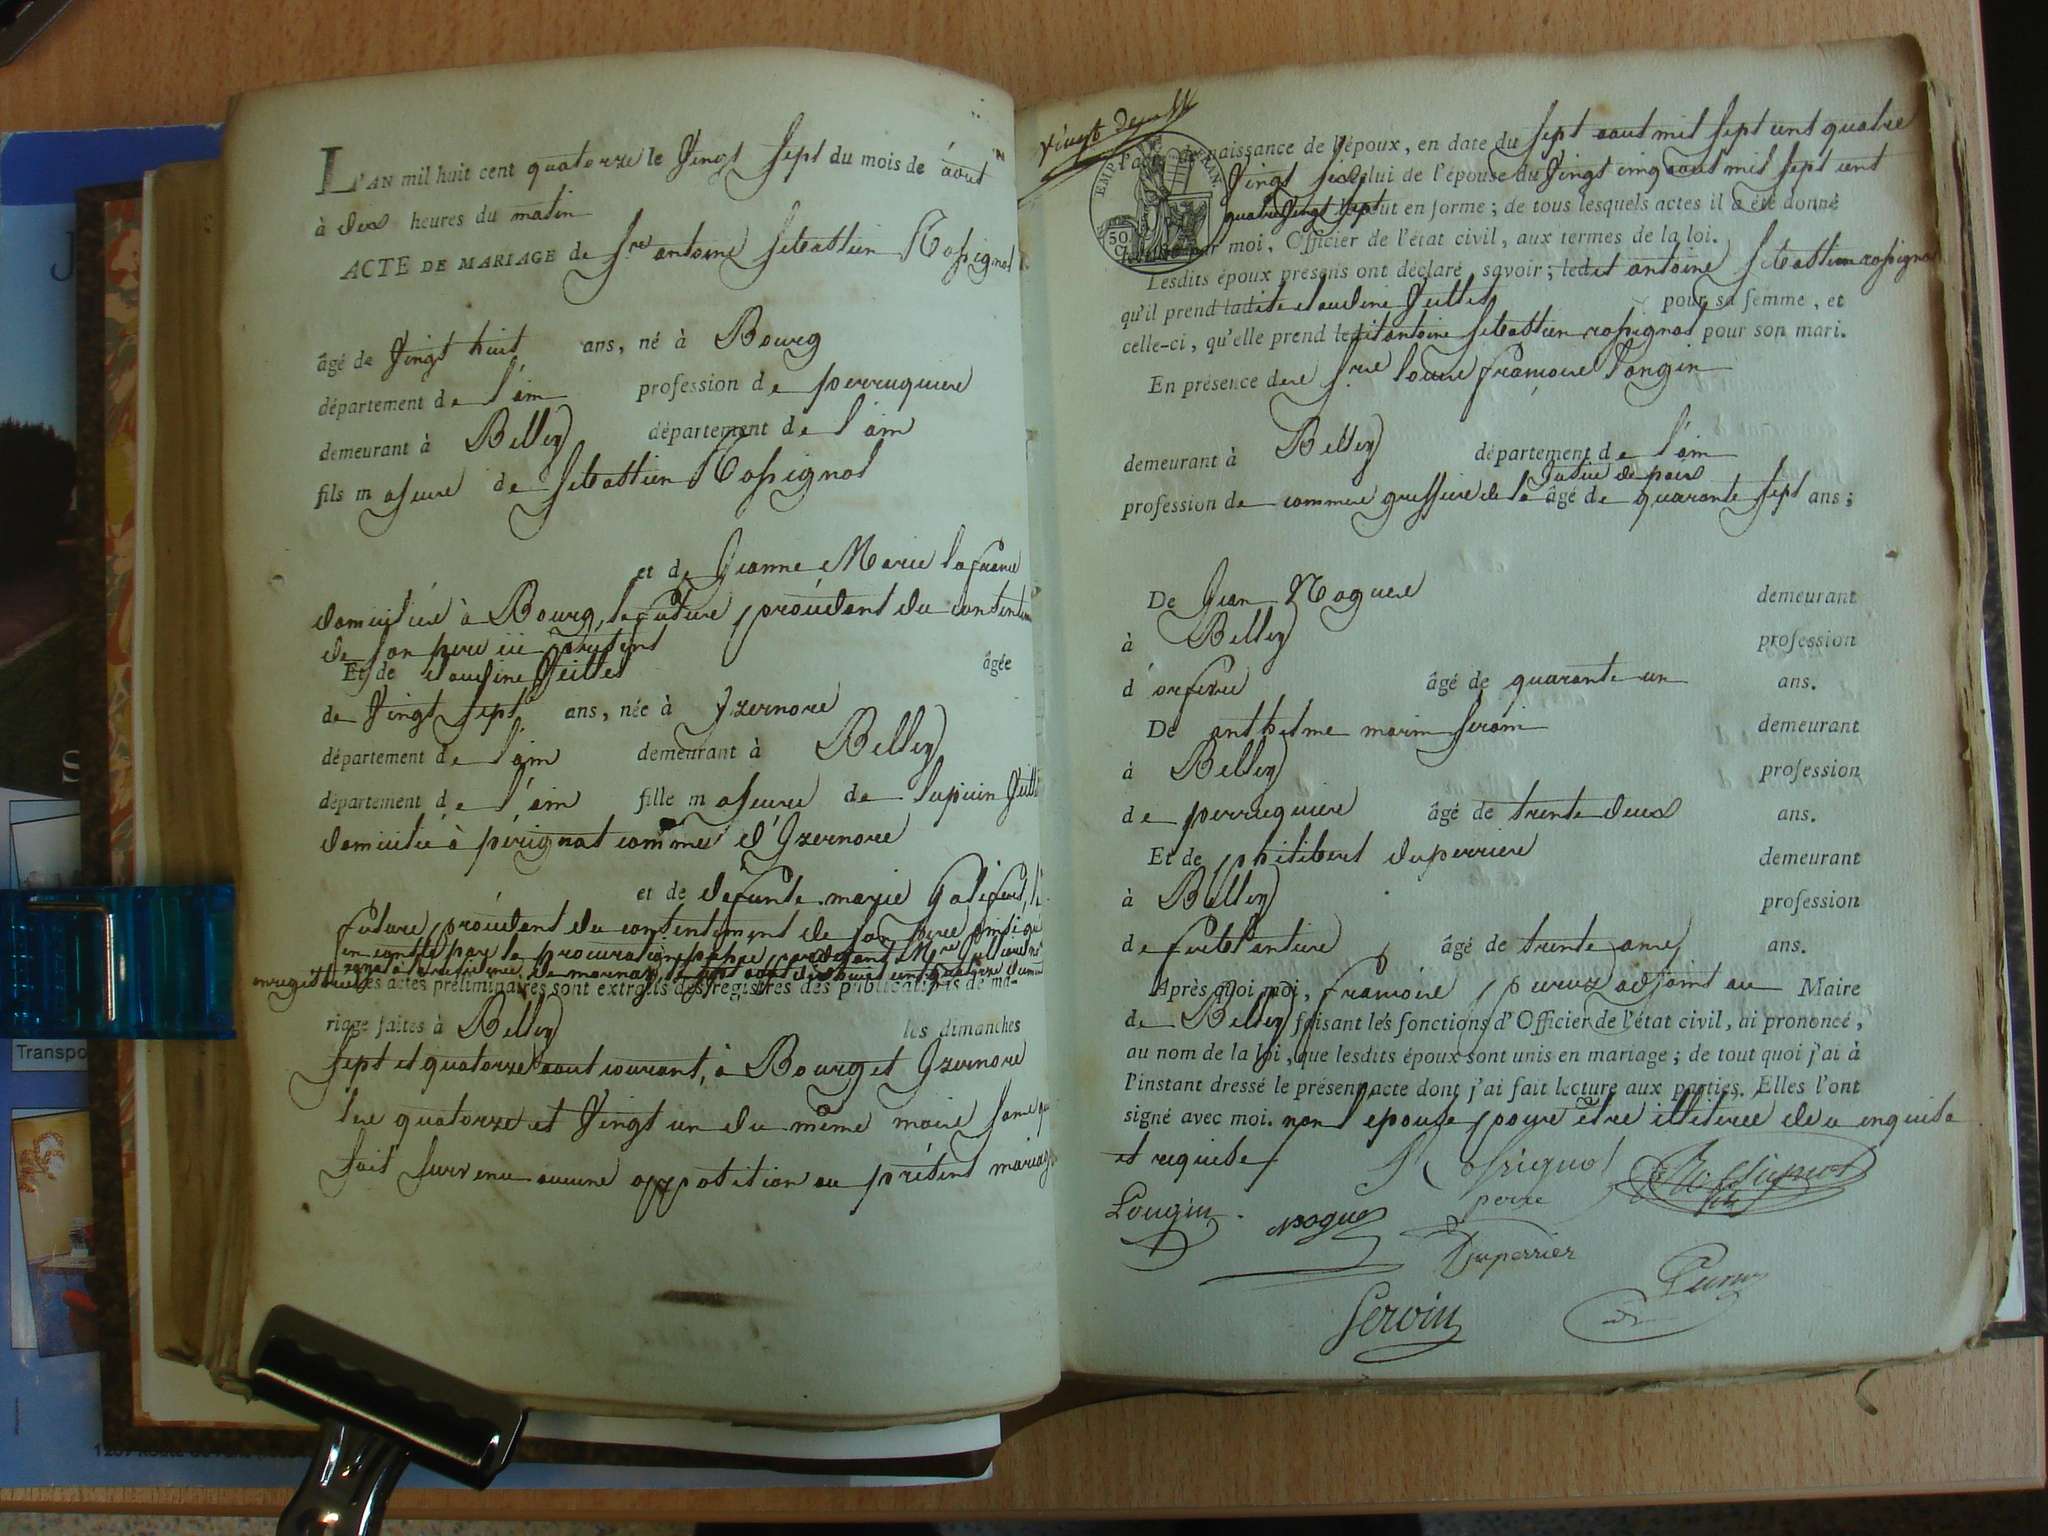 L'AN mil huit cent quatorze le vingt sept du mois de aout
à dix heures du matin
ACTE DE MARIAGE de Sr antoine sebastien Rossignol
âgé de vingt huit ans, né à Bourg
département de l'ain profession de perruquier
demeurant à Belley département de l'ain
fils majeur de sebastien Rossignol
et de Jeanne Marie lafrance
domiciliés à Bourg, le future procédant du
de son pere ici présent
Et de claudine Juillet âgée
de vingt sept ans, née à Izernore
département de l'ain demeurant à Belley
département de l'ain fille majeure de
domicilié à pérignat commune d'Izernore
et de defunte marie
future procédant du consentement de son pere
par la procuration
Les actes préliminaires sont extraits des registres des publications de ma-
riage faites à Belley les dimanches
sept et quatorze aout courant, à Bourg et Izernore
les quatorze et vingt un du même mois sans qu
soit survenu aucune opposition au présent mariage
EMP. FRAN.
50
l'acte de naissance de l'époux, en date du sept aout mil sept cent quatre
vingt six celui de l'épouse du vingt cinq aout mil sept cent
quatre vingt sept le tout en forme; de tous lesquels actes il a été donné
lecture par moi, Officier de l'état civil, aux termes de la loi.
Lesdits époux présens ont déclaré, savoir; ledit antoine sebastien rossignol
qu'il prend ladite claudine Juillet pour sa femme, et
celle-ci, qu'elle prend ledit antoine sebastien rossignol pour son mari.
En présence de françois Longin
demeurant à Belley département de l'ain
justice de paix
profession de commis greffier de la âgé de quarante sept ans;
De Jean Nogues demeurant
à Belley profession
d'orfevre âgé de quarante un ans.
De anthelme marin servin demeurant
à Belley profession
de perruquier âgé de trente deux ans.
Et de philibert duperrier demeurant
à Belley profession
de ferblantier âgé de trente ans.
Après quoi moi, françois peruz adjoint au Maire
de Belley faisant les fonctions d'Officier de l'état civil, ai prononcé,
au nom de la loi, que lesdits époux sont unis en mariage; de tout quoi j'ai à
l'instant dressé le présent acte dont j'ai fait lecture aux parties. Elles l'ont
signé avec moi. non l'epouse pour etre illiteree de ce enquise
et requise
S Rossignol
perre
Rossignol
fils
Longin
Nogues
Duperrier
Peruz
Servin
Transpo